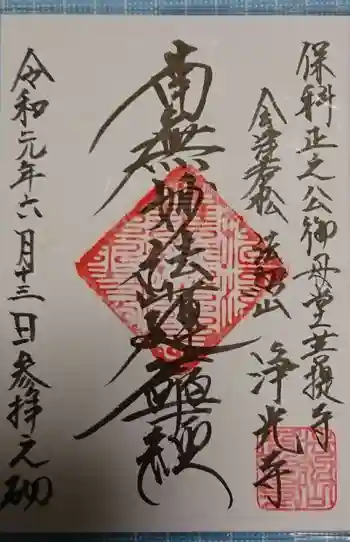 保科正之公御母堂菩提寺
会津若松 法紹山 浄光寺
南無妙法蓮華経
令和元年六月十三日参拝之砌